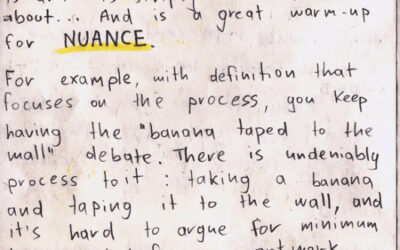 about... And is a great warm-up
for NUANCE.
For example, with definition that
focuses on the process, you keep
having the "banana taped to the
wall" debate. There is undeniably
process to it : taking a banana
and taping it to the wall, and
it's hard to argue for minimum